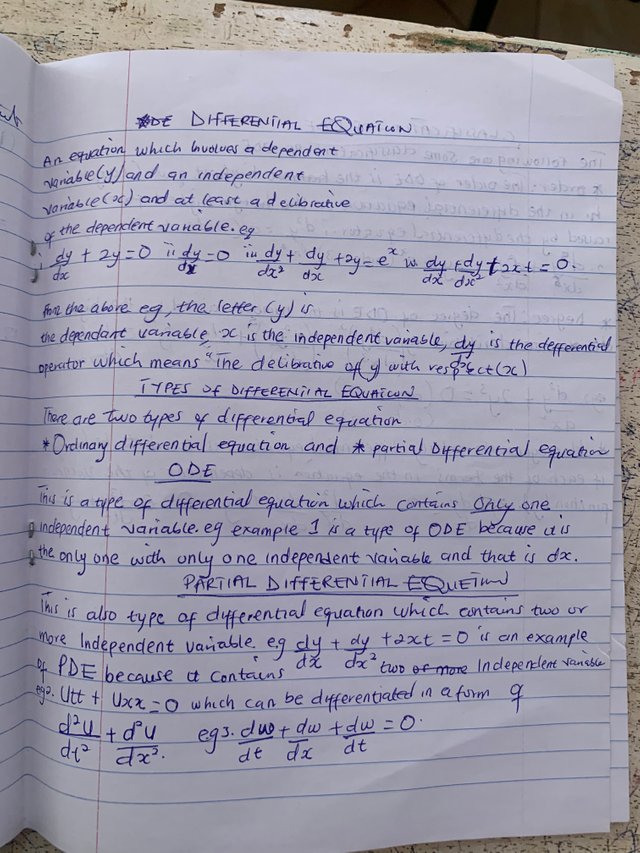 DIFFERENTIAL EQUATION
An equation which involves a dependent
variable (y) and an independent
variable (x) and at least a delibrative
of the dependent variable. eg
i dy/dx + 2y = 0 ii dy/dx = 0 iii dy/dx² + dy/dx + 2y = eˣ iv. dy/dx + dy/dx² + 2xt = 0.
from the above eg, the letter (y) is
the dependant variable, x is the independent variable, dy/dx is the defferential
operator which means "The delibrative of y with respect (x)
TYPES OF DIFFERENTIAL EQUATION
There are two types of differential equation
*Ordinary differential equation and * partial Differential equation
ODE
This is a type of differential equation which contains Only one
independent variable. eg example 1 is a type of ODE because it is
the only one with only one independent variable and that is dx.
PARTIAL DIFFERENTIAL EQUETION
This is also type of differential equation which contains two or
more Independent variable. e.g dy/dx + dy/dx² + 2xt = 0 is an example
of PDE because it contains two or more Independent variable
eg2. Utt + Uxx = 0 which can be differentiated in a form of
d²U/dt² + d²U/dx². eg3. dw/dt + dw/dx + dw/dt = 0.